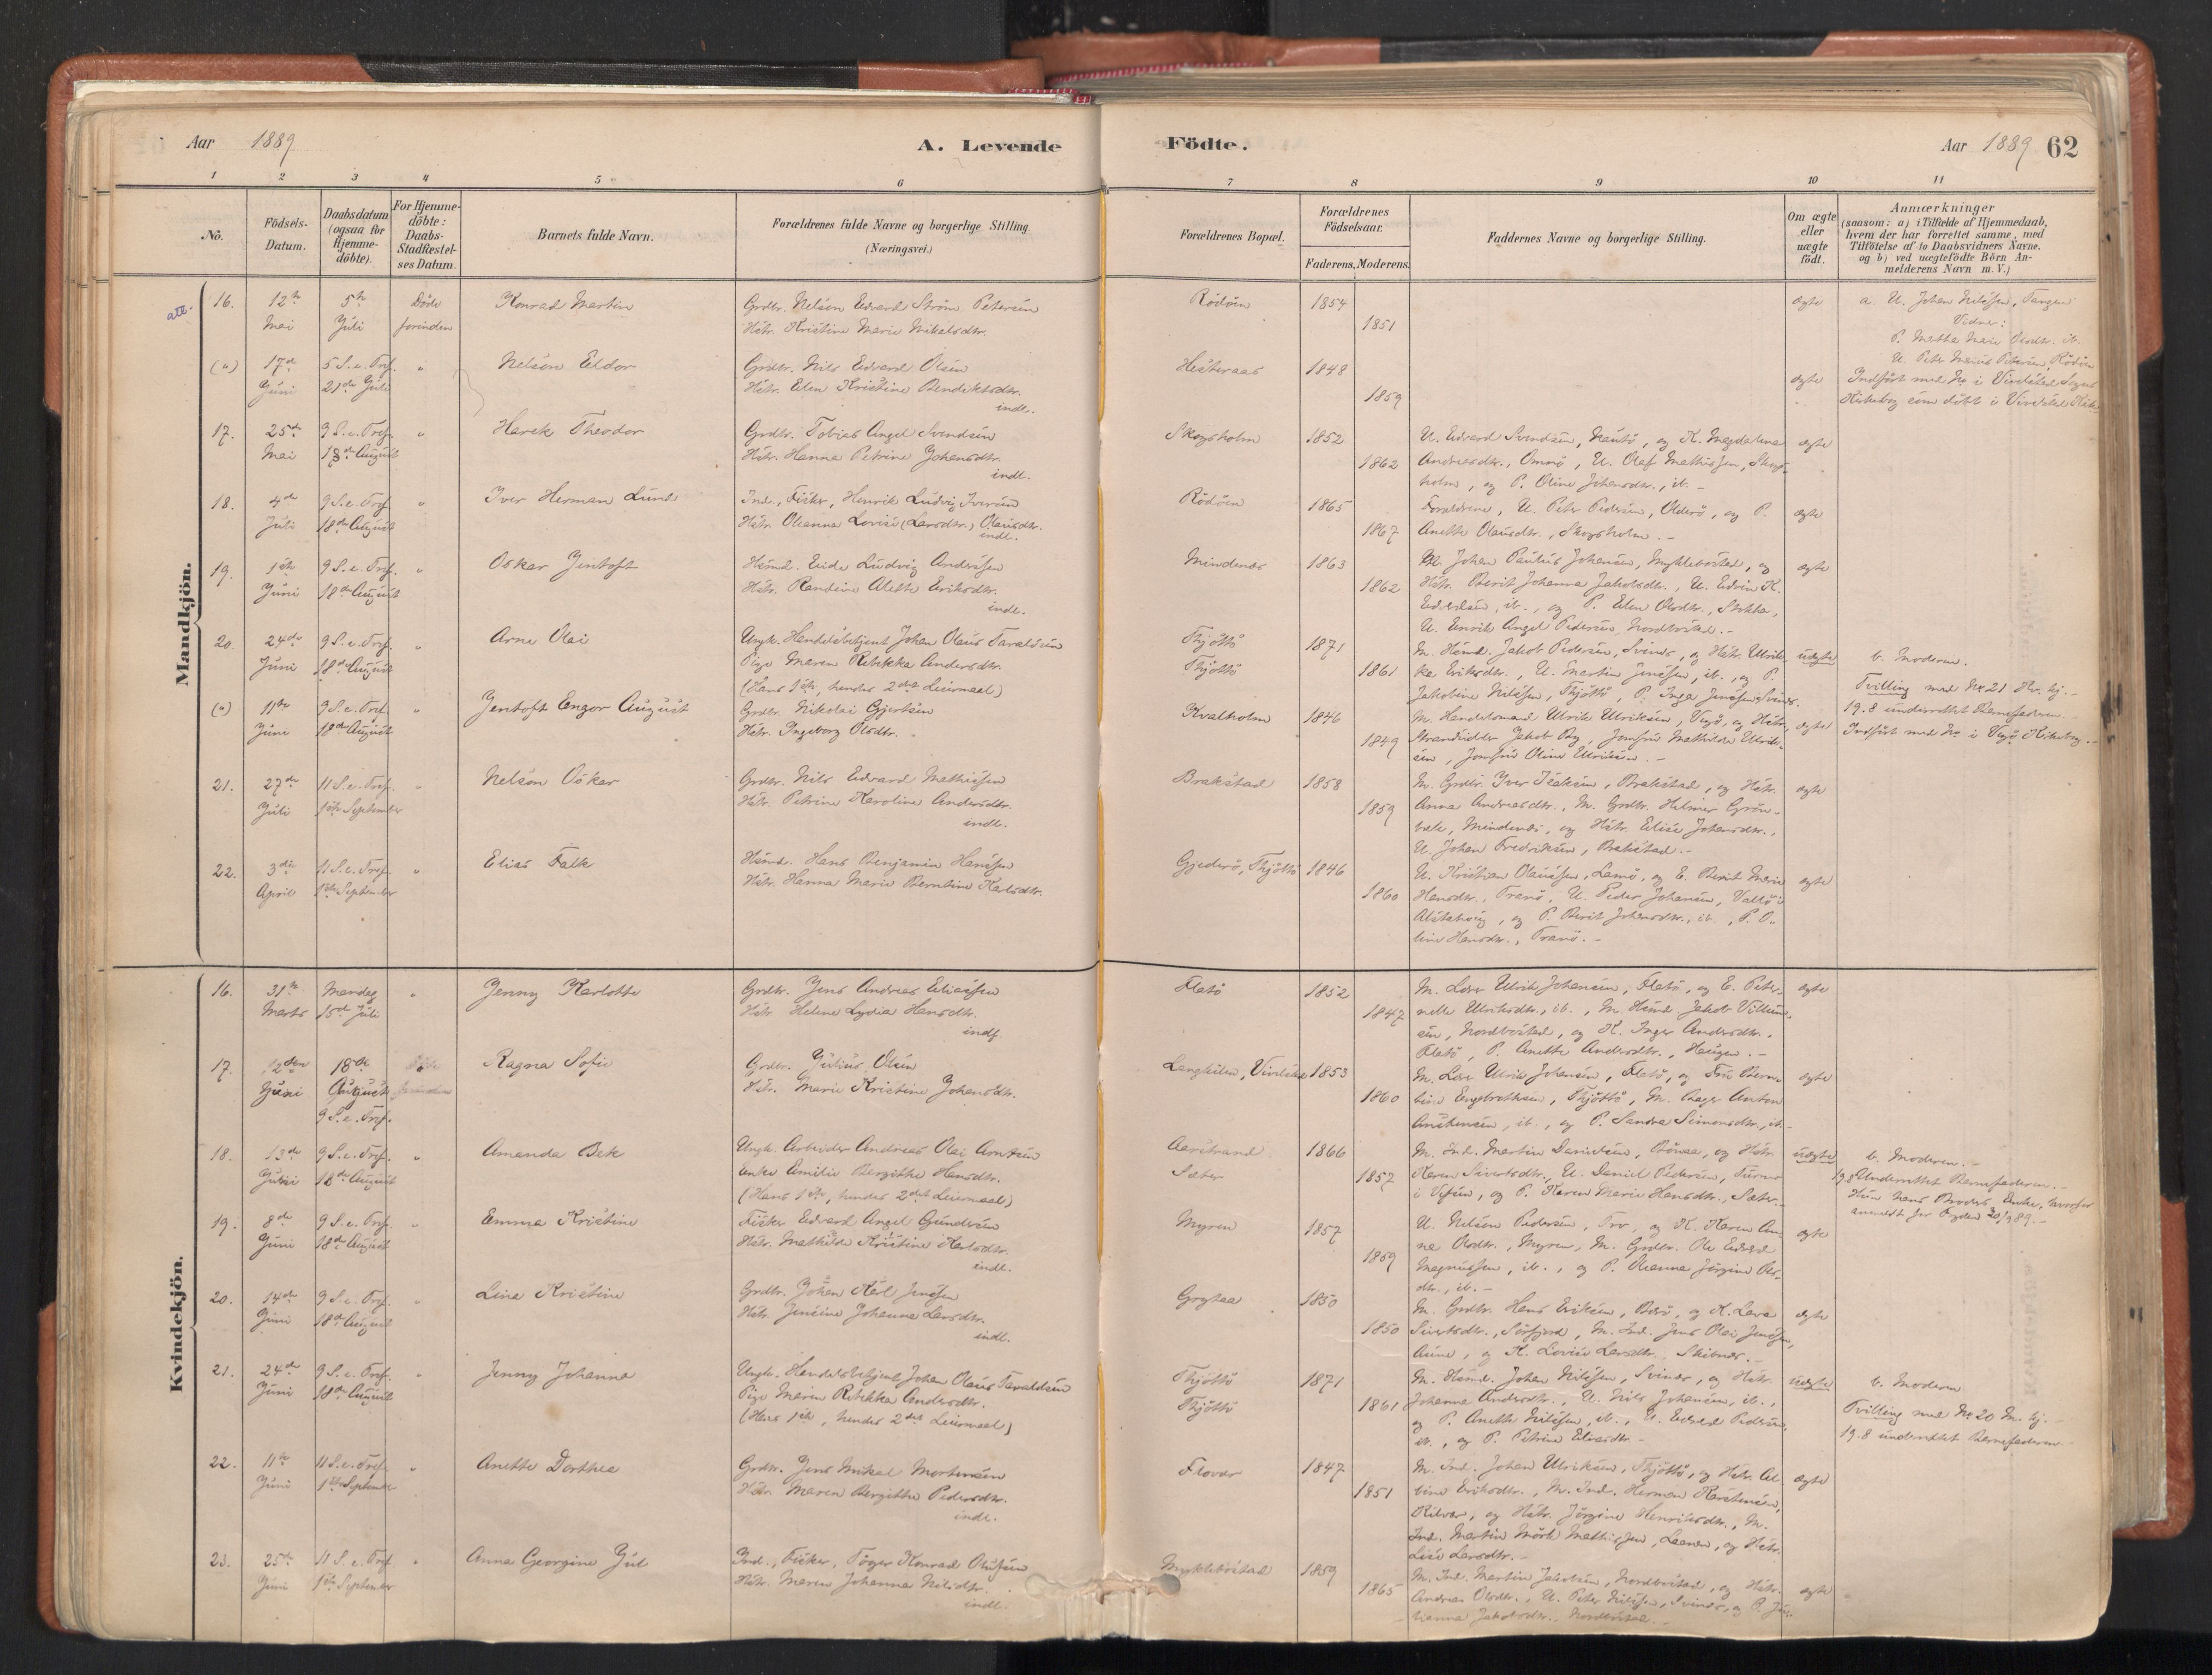 Aar 1889
A. Levende
Födte.
Aar 1889 62
1 2 3 4 5 6 7 8 9 10 11
No.
Födsels-
Datum.
Daabsdatum
(ogsaa för
Hjemme-
döbte).
For Hjemme-
döbte:
Daabs-
Stadfæstel-
ses Datum.
Barnets fulde Navn.
Forældrenes fulde Navne og borgerlige Stilling.
(Næringsvei.)
Forældrenes Bopæl.
Forældrenes
Födselsaar.
Faderens. Moderens.
Faddernes Navne og borgerlige Stilling.
Om ægte
eller
uægte
födt.
Anmærkninger
(saasom: a) i Tilfælde af Hjemmedaab,
hvem der har forrettet samme, med
Tilföielse af to Daabsvidners Navne.
og b) ved uægtefödte Börn An-
melderens Navn m. V.)
Mandkjön.
att.
16. 12te Mai
5te Juli
Döde
forinden
Konrad Martin
Grdbr. Nelson Edvard Ström Petersen
Hstr. Kristine Marie Mikalsdtr.
Rödöen 1854
1851
ægte
a. U. Johan Nilssen, Tangen
Vidner:
P. Martha Marie Olsdtr. ib.
U. Peter Marius Petersen, Rödöen
(a) 17de Juni
5 S. e. Tref.
21de Juli
"
Nelson Eldor
Grdbr. Nils Edvard Olsen
Hstr. Elen Kristine Bendiktsdtr.
indl.
Hesteraas 1848
1859
ægte
Indfört med No i Vivelstad Sogns
Kirkebog som döbt i Vivelstad Kirke
17. 25de Mai
9 S. e. Tref.
18de August
"
Harek Theodor
Grdbr. Tobias Angel Svendsen
Hstr. Hanna Petrine Johansdtr.
indl.
Skogsholm 1852
1862
U. Edvard Svendsen, Nautö, og K. Magdalena
Andreasdtr., Omnö, U. Olaf Mathissen, Skogs-
holm, og P. Oline Johansdtr., ib. -
ægte
18. 4de Juli
9 S. e. Tref.
18de August
"
Iver Herman Lund
Ind., Fisker, Henrik Ludvig Iversen
Hstr. Oleanna Lovise (Larsdtr.) Olausdtr.
indl.
Rödöen 1865
1867
Forældrene, U. Peter Pedersen, Olderö, og P.
Anette Olausdtr., Skogsholm. -
ægte
19. 1ste Juni
9 S. e. Tref.
18de August
"
Oskar Jentoft
Husmd. Eide Ludvig Andersen
Hstr. Randine Alette Eriksdtr.
indl.
Mindenes 1863
1862
M. Johan Paulus Johansen, Myklebostad, og
Hstr. Berit Johanna Jakobsdtr., U. Edvin K.
Edvardsen, ib., og P. Elen Olsdtr., Stokka,
U. Enrik Angel Pedersen, Nordbostad. -
ægte
20. 24de Juni
9 S. e. Tref.
18de August
"
Arne Olai
Ungk. Handelsbetjent Johan Olaus Taraldsen
Pige Maren Rebekka Andersdtr.
(Hans 1ste, hendes 2det Leiermaal)
Thjöttö 1871
Thjöttö 1861
M. Husmd. Jakob Pedersen, Svines, og Hstr. Ulrik-
ka Eriksdtr., U. Martin Jensen, ib., og P.
Jakobine Nilssen, Thjöttö, P. Inga Jensen, Svines.
uægte
b. Moderen.
Tvilling med No 21 Kv. kj. -
19.8 underrettet Barnefaderen. -
(a) 11te Juni
9 S. e. Tref.
18de August
"
Jentoft Engor August
Grdbr. Nikolai Gjertsen
Hstr. Ingeborg Olsdtr.
Kvalholm 1846
1849
M. Handelsmand Ulrik Ulriksen, Vegö, og Hstr.
Strandsidder Jakob By, Jomfru Mathilde Ulrik-
sen, Jomfru Oline Ulriksen. -
ægte
Indfört med No i Vegö Kirkebog. -
21. 27de Juli
11 S. e. Tref.
1ste September
"
Nelson Oskar
Grdbr. Nils Edvard Mathissen
Hstr. Petrine Karoline Andersdtr.
indl.
Brakstad 1858
1859
M. Grdbr. Iver Isaksen, Brakstad, og Hstr.
Anna Andreasdtr., M. Grdbr. Hilmer Grön-
bek, Mindenes, og Hstr. Elise Johansdtr.,
U. Johan Fredriksen, Brakstad. -
ægte
22. 3die April
11 S. e. Tref.
1ste September
"
Elias Falk
Husmd. Hans Benjamin Hanssen
Hstr. Hanna Marie Berntine Karlsdtr.
Gjederö, Thjöttö 1846
1860
U. Kristian Olaussen, Lamö, og E. Berit Marie
Hansdtr., Tranö, U. Peder Johansen, Valö i
Alstahoug, og P. Berit Johansdtr., ib., P. O-
line Hansdtr., Tranö. -
ægte
Kvindekjön.
16. 31te Marts
Mandag
15de Juli
"
Jenny Karlotte
Grdbr. Jens Andreas Eliassen
Hstr. Helene Lydia Hansdtr.
indf.
Flatö 1852
1847
M. Lærer Ulrik Johansen, Flatö, og E. Peter-
nelle Ulriksdtr., ib., M. Husmd. Jakob Villum-
sen, Nordbostad, og K. Inger Andersdtr.,
Flatö, P. Anette Andersdtr., Haugen. -
ægte
17. 12den Juni
18de
August
9 S. e. Tref.
Döde
forinden
Ragna Sofie
Grdbr. Julius Olsen
Hstr. Marie Kristine Johansdtr.
Langkilen, Vivelstad 1853
1860
M. Lærer Ulrik Johansen, Flatö, og Fru Berno-
line Engebrethsen, Thjöttö, M. Bager Anton
Anstensen, ib., og P. Sandra Simonsdtr., ib. -
ægte
18. 13de Juni
9 S. e. Tref.
18de August
"
Amanda Bek
Ungk. Arbeider Andreas Olai Arntsen
Enke Emilie Bergitte Hansdtr.
(Hans 1ste, hendes 2det Leiermaal)
Aarstrand 1866
Sæter 1857
M. Ind. Martin Danielsen, Bönaa, og Hstr.
Karen Sivertsdtr., U. Daniel Pedersen, Turmo
i Vefsen, og P. Karen Marie Hansdtr., Sæter. -
uægte
b. Moderen. -
19.8 Underrettet Barnefaderen. -
Hun hans Broders Enke, hvorfor
anmeldt for Fogden 20/9 89. -
19. 8de Juni
9 S. e. Tref.
18de August
"
Emma Kristine
Fisker Edvard Angel Gundersen
Hstr. Mathilde Kristine Karlsdtr.
indl.
Myren 1857
1859
U. Nilson Pedersen, Tro, og K. Karen An-
ne Olsdtr., Myren, M. Grdbr. Ole Edvard
Magnussen, ib., og P. Oleanna Jörgine Ols-
dtr., ib. -
ægte
20. 14de Juni
9 S. e. Tref.
18de August
"
Line Kristine
Grdbr. Johan Karl Jensen
Hstr. Jensine Johanna Larsdtr.
indl.
Grytaa 1850
1850
M. Grdbr. Hans Eriksen, Borö, og K. Lava
Sivertsdtr., Sörfjord, M. Ind. Jens Olai Jenssen,
Aune, og K. Lovise Larsdtr., Skibnes. -
ægte
21. 24de Juni
9 S. e. Tref.
18de August
"
Jenny Johanna
Ungk. Handelsbetjent Johan Olaus Taraldsen
Pige Maren Rebekka Andersdtr.
(Hans 1ste, hendes 2det Leiermaal)
Thjöttö 1871
Thjöttö 1861
M. Husmd. Johan Nilssen, Svines, og Hstr.
Johanna Andersdtr., U. Nils Johansen, ib.,
og P. Anette Nilssen, ib., U. Edvard Pedersen,
ib., og P. Petrine Eliasdtr. -
uægte
b. Moderen
Tvilling med No 20 M. kj. -
19.8 underrettet Barnefaderen. -
22. 11te Juni
11 S. e. Tref.
1ste September
"
Anette Dorthea
Grdbr. Jens Mikal Mortensen
Hstr. Maren Bergitte Pedersdtr.
indl.
Flovær 1847
1851
M. Ind. Johan Ulriksen, Thjöttö, og Hstr. Al-
bine Eriksdtr., M. Ind. Herman Karstensen,
Kilvær, og Hstr. Jörgine Henriksdtr., M.
Ind. Martin Mörk Mathissen, Laanen, og Hstr.
Lise Larsdtr. -
ægte
23. 25te Juni
11 S. e. Tref.
1ste September
"
Anna Georgine Jul
Ind., Fisker, Töger Konrad Olufsen
Hstr. Maren Johanna Nilsdtr.
indl.
Myklebostad 1859
1865
M. Ind. Martin Jakobsen, Nordbostad, og Hstr.
Andrea Olsdtr., U. Peter Nilssen, Svines, og P. Jo-
hanna Jakobsdtr., Nordbostad. -
ægte